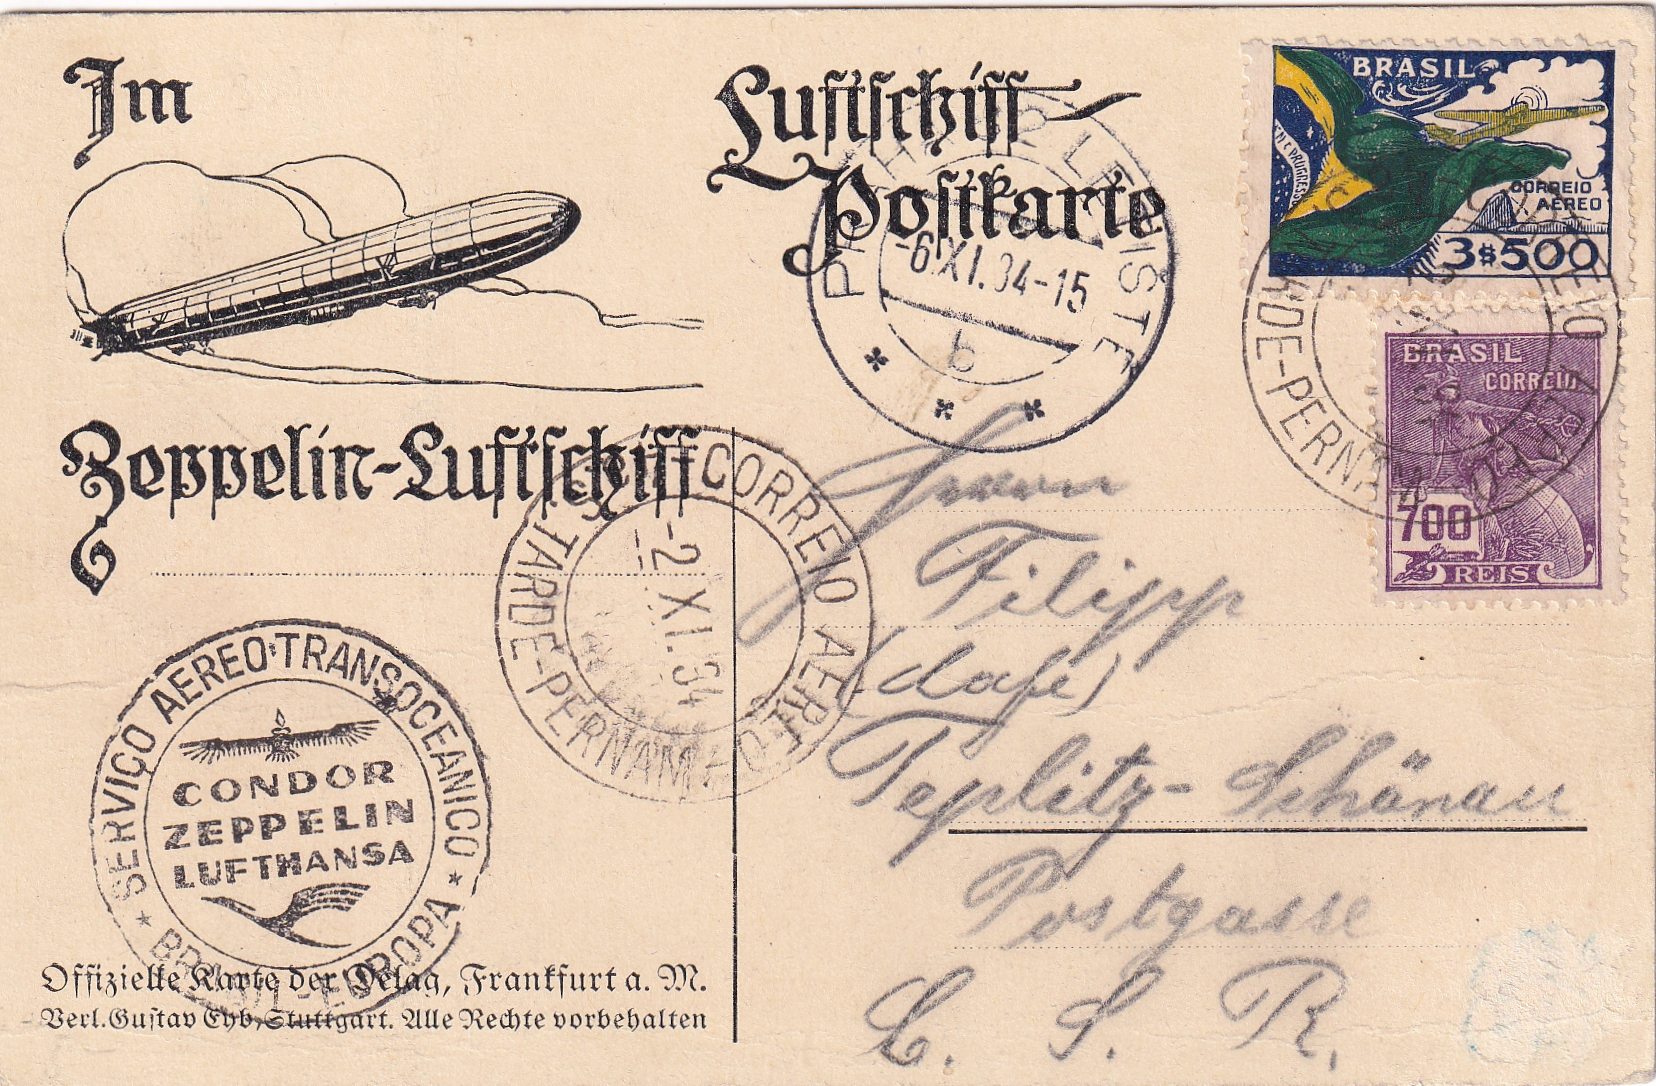 Im
Luftschiff
Postkarte
Zeppelin-Luftschiff
BRASIL
CORREIO
AEREO
3$500
BRASIL
CORREIO
700
REIS
-6.XI.34-15
b
CORREIO AEREO
TARDE-PERNAM
-2 XI.34
TARDE-PERNAM
SERVIÇO AEREO·TRANSOCEANICO
CONDOR
ZEPPELIN
LUFTHANSA
BRASIL-EUROPA
Herrn
Filipp
(Cafe)
Teplitz-Schönau
Postgasse
Č. S. R.
Offizielle Karte der Delag, Frankfurt a. M.
Verl. Gustav Eyb, Stuttgart. Alle Rechte vorbehalten